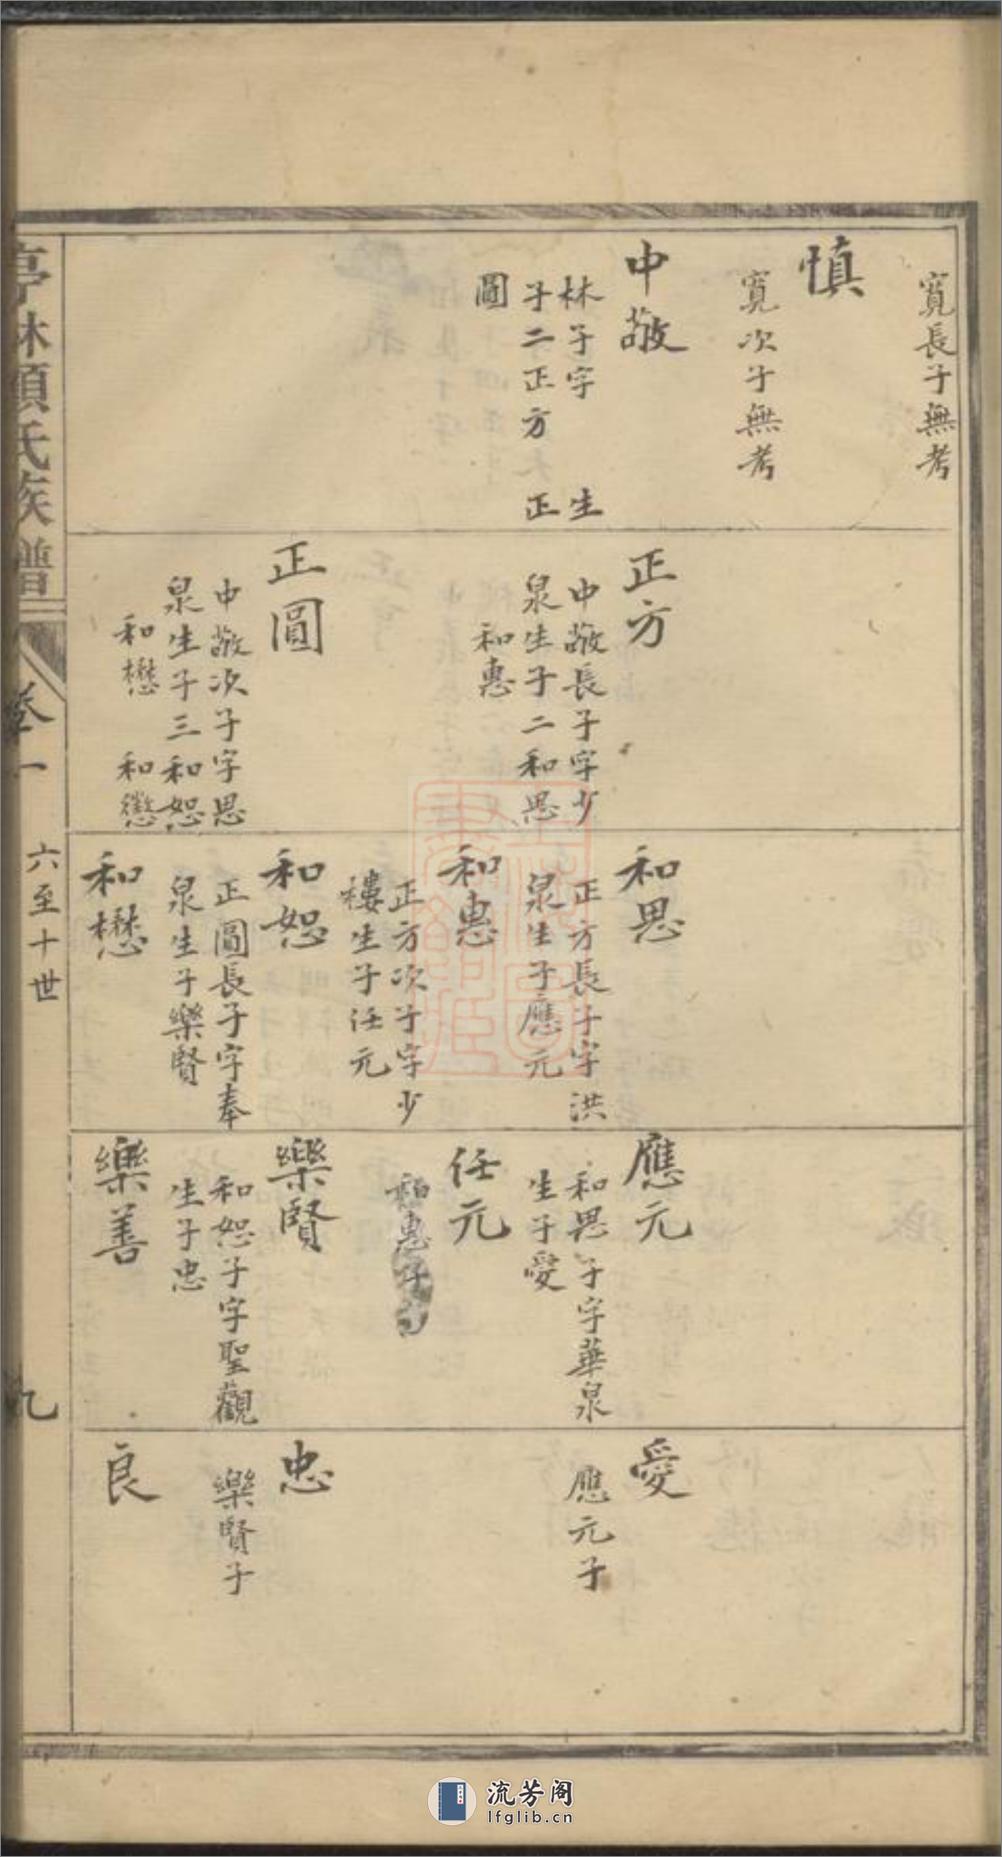 寬長子無考
慎
寬次子無考
中敬
林子字　生
子二正方　正
圓
正方
中敬長子字少
泉生子二和思
和惠
正圓
中敬次子字思
泉生子三和恕
和懋　和懲
和思
正方長子字洪
泉生子應元
和惠
正方次子字少
樓生子任元
和恕
正圓長子字奉
泉生子樂賢
和懋
應元
和思子字華泉
生子愛
任元
和惠子
樂賢
和恕子字聖觀
生子忠
樂善
愛
應元子
忠
樂賢子
良
亭林顧氏族譜
卷一
六至十世
九
流芳阁
lfglib.cn